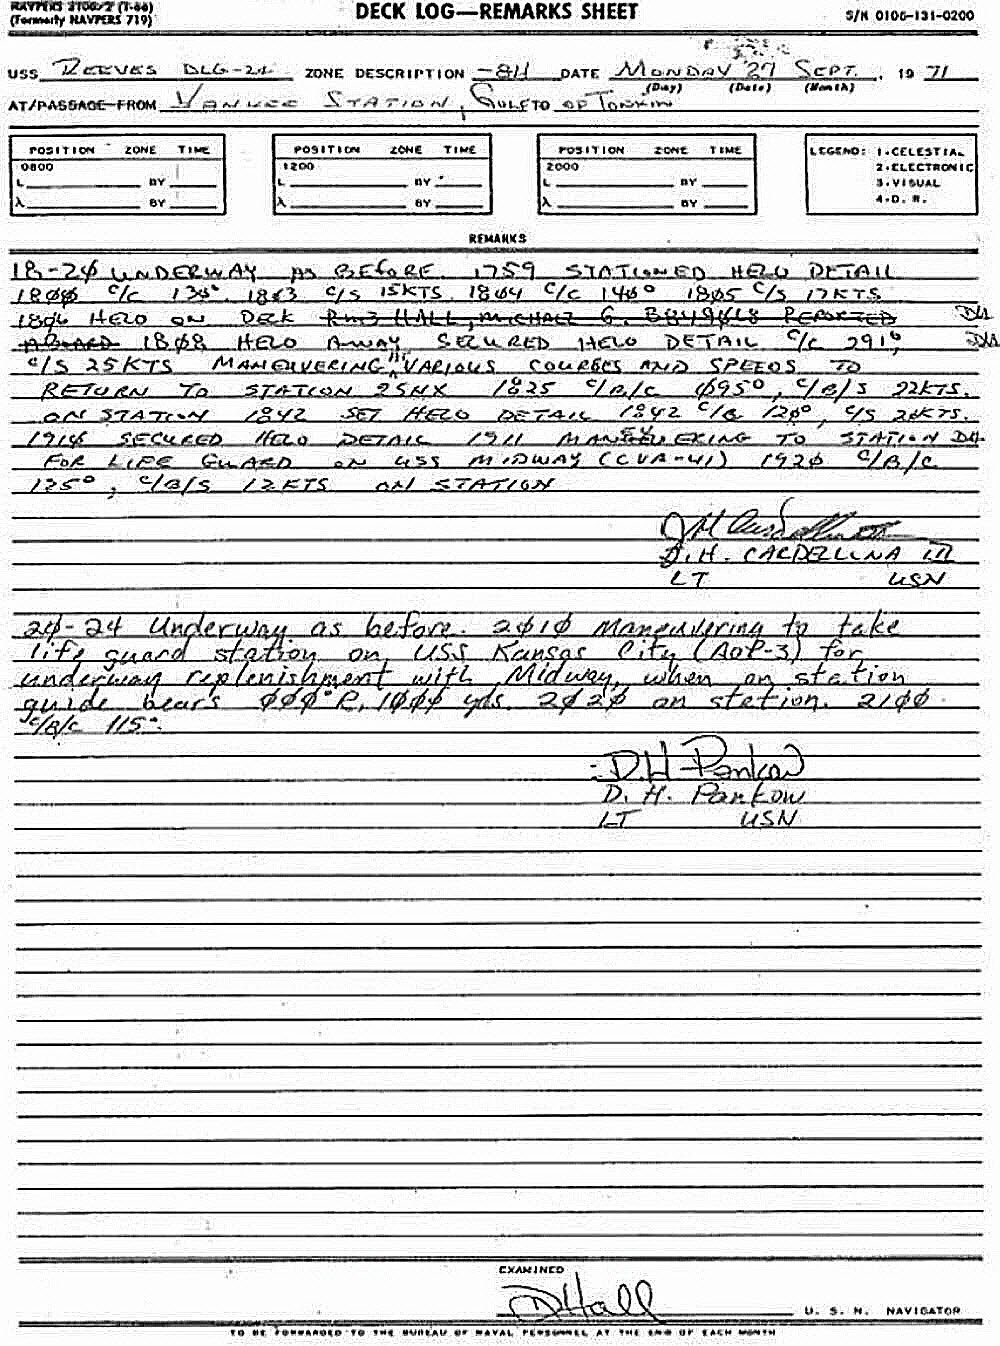 NAVPERS 3100/2 (7-66)
(Formerly NAVPERS 719)
DECK LOG—REMARKS SHEET
S/N 0106-131-0200
USS REEVES DLG-24 ZONE DESCRIPTION -8H DATE MONDAY 27 SEPT. , 19 71
(Day) (Date) (Month)
AT/PASSAGE FROM YANKEE STATION, GULF TO OF TONKIN
POSITION ZONE TIME
0800
L BY
λ BY
POSITION ZONE TIME
1200
L BY
λ BY
POSITION ZONE TIME
2000
L BY
λ BY
LEGEND: 1-CELESTIAL
2-ELECTRONIC
3-VISUAL
4-D. R.
REMARKS
18-2φ UNDERWAY AS BEFORE 1759 STATIONED HELO DETAIL
18φφ C/C 13φ° 18φ3 C/S 15KTS 18φ4 C/C 14φ° 18φ5 C/S 17KTS
18φ6 HELO ON DECK HALL, MICHAEL G. REPORTED
ABOARD 18φ8 HELO AWAY SECURED HELO DETAIL C/C 291°,
C/S 25KTS MANEUVERING VARIOUS COURSES AND SPEEDS TO
RETURN TO STATION 25NX 1825 C/B/C φ95°, C/B/S 22KTS.
ON STATION 1842 SET HELO DETAIL 1842 C/B 12φ°, C/S 2φKTS.
SECURED HELO DETAIL 1911 MANEUVERING TO STATION
FOR LIFE GUARD ON USS MIDWAY (CVA-41) 192φ C/B/C
125°, C/B/S 12KTS ON STATION
D.H. CARDELLINA III
LT USN
2φ-24 Underway as before. 2φ1φ Maneuvering to take
life guard station on USS Kansas City (AOR-3) for
underway replenishment with Midway, when on station
guide bears φφφ°R, 1φφφ yds. 2φ2φ on station. 21φφ
C/B/C 115°.
D.H Pankow
D. H. Pankow
LT USN
EXAMINED
DHall
U. S. N. NAVIGATOR
TO BE FORWARDED TO THE BUREAU OF NAVAL PERSONNEL AT THE END OF EACH MONTH